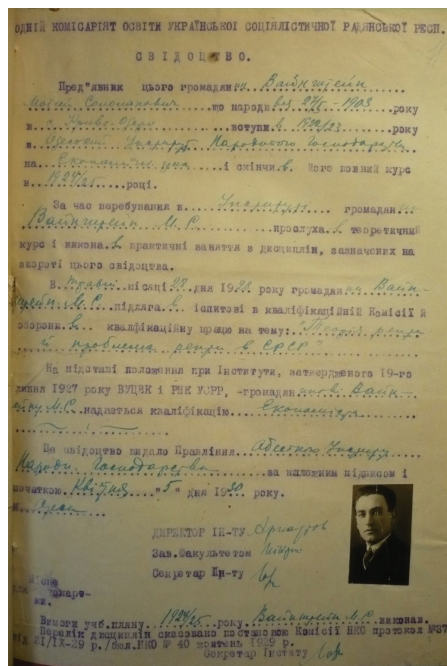 ОДНІЙ КОМІСАРІЯТ ОСВІТИ УКРАЇНСЬКОЇ СОЦІЯЛІСТИЧНОЇ РАДЯНСЬКОЇ РЕСП.
СВІДОЦТВО.
Пред"явник цього громадянин Вайнштейн
Соломонович що народився 27/ - 1903 року
в вступив 1922/23 року
в Одеський Інститут Народного Господарства
на і скінчив його повний курс
в 1924/25 році.
За час перебування в Інституті громадянин
Вайнштейн М.С. прослухав теоретичний
курс і виконав практичні заняття в дисциплін, зазначених на
звороті цього свідоцтва.
В місяці 28 дня 19 року громадянин Вайн-
штейн М.С. підлягав іспитові в кваліфікаційній Комісії й
обороняв кваліфікаційну працю на тему: "Теорія ренти
й проблема ренти в СРСР"
На підставі положення при Інститути, затвердженого 19-го
липня 1927 року ВУЦВК і РНК УСРР, -громадянинові Вайн-
М.С. надається кваліфікацію Економіста
Це свідоцтво видало Правління Інститут
Народн. Господарства за належним підписом і
печаткою Квітня "5" дня 1930 року.
м. Одеса
ДИРЕКТОР ІН-ТУ
Зав.Факультетом
Секретар Ін-ту
Місце
для
ки.
Вимоги учб.пляну 1924/25 року Вайнштейн М.С. виконав.
Перелік дисциплін складено постановою Комісії НКО протокол №37
від 21/IX-29 р./бюл.НКО № 40 жовтень 1929 р.
Секретар Інстату